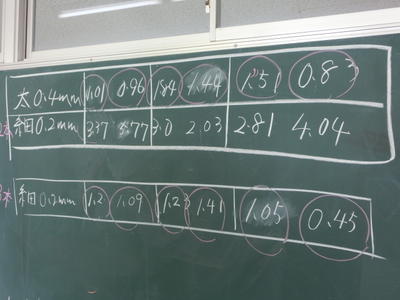 太0.4mm 1.01 0.96 1.84 1.44 1.51 0.83
2本 細0.2mm 3.37 3.77 3.0 2.03 2.81 4.04
本 細0.2mm 1.2 1.09 1.23 1.41 1.05 0.45